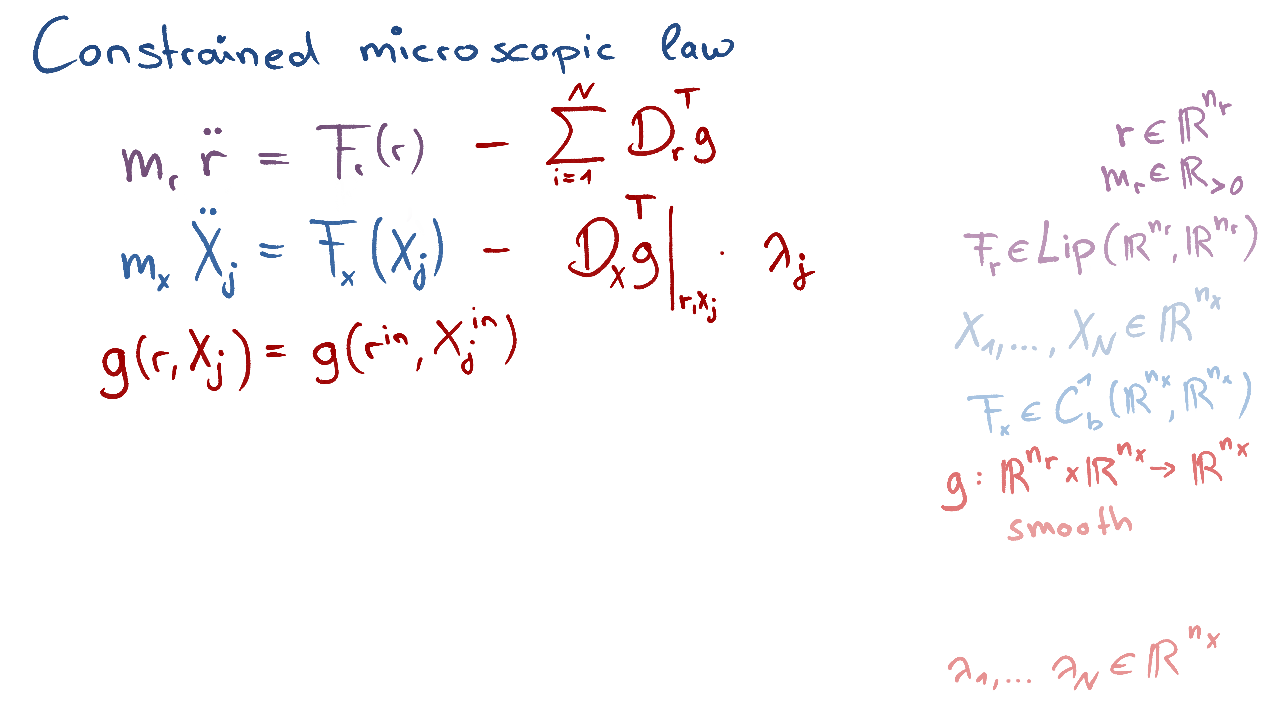 Constrained microscopic law
m_r r̈ = F_r(r) − ∑_{i=1}^{N} D_r^T g
m_x Ẍ_j = F_x(X_j) − D_x^T g|_{r,X_j} · λ_j
g(r, X_j) = g(r^{in}, X_j^{in})
r ∈ ℝ^{n_r}
m_r ∈ ℝ_{>0}
F_r ∈ Lip(ℝ^{n_r}, ℝ^{n_r})
X_1, ..., X_N ∈ ℝ^{n_x}
F_x ∈ C_b^1(ℝ^{n_x}, ℝ^{n_x})
g : ℝ^{n_r} × ℝ^{n_x} → ℝ^{n_x}
smooth
λ_1, ... λ_N ∈ ℝ^{n_x}